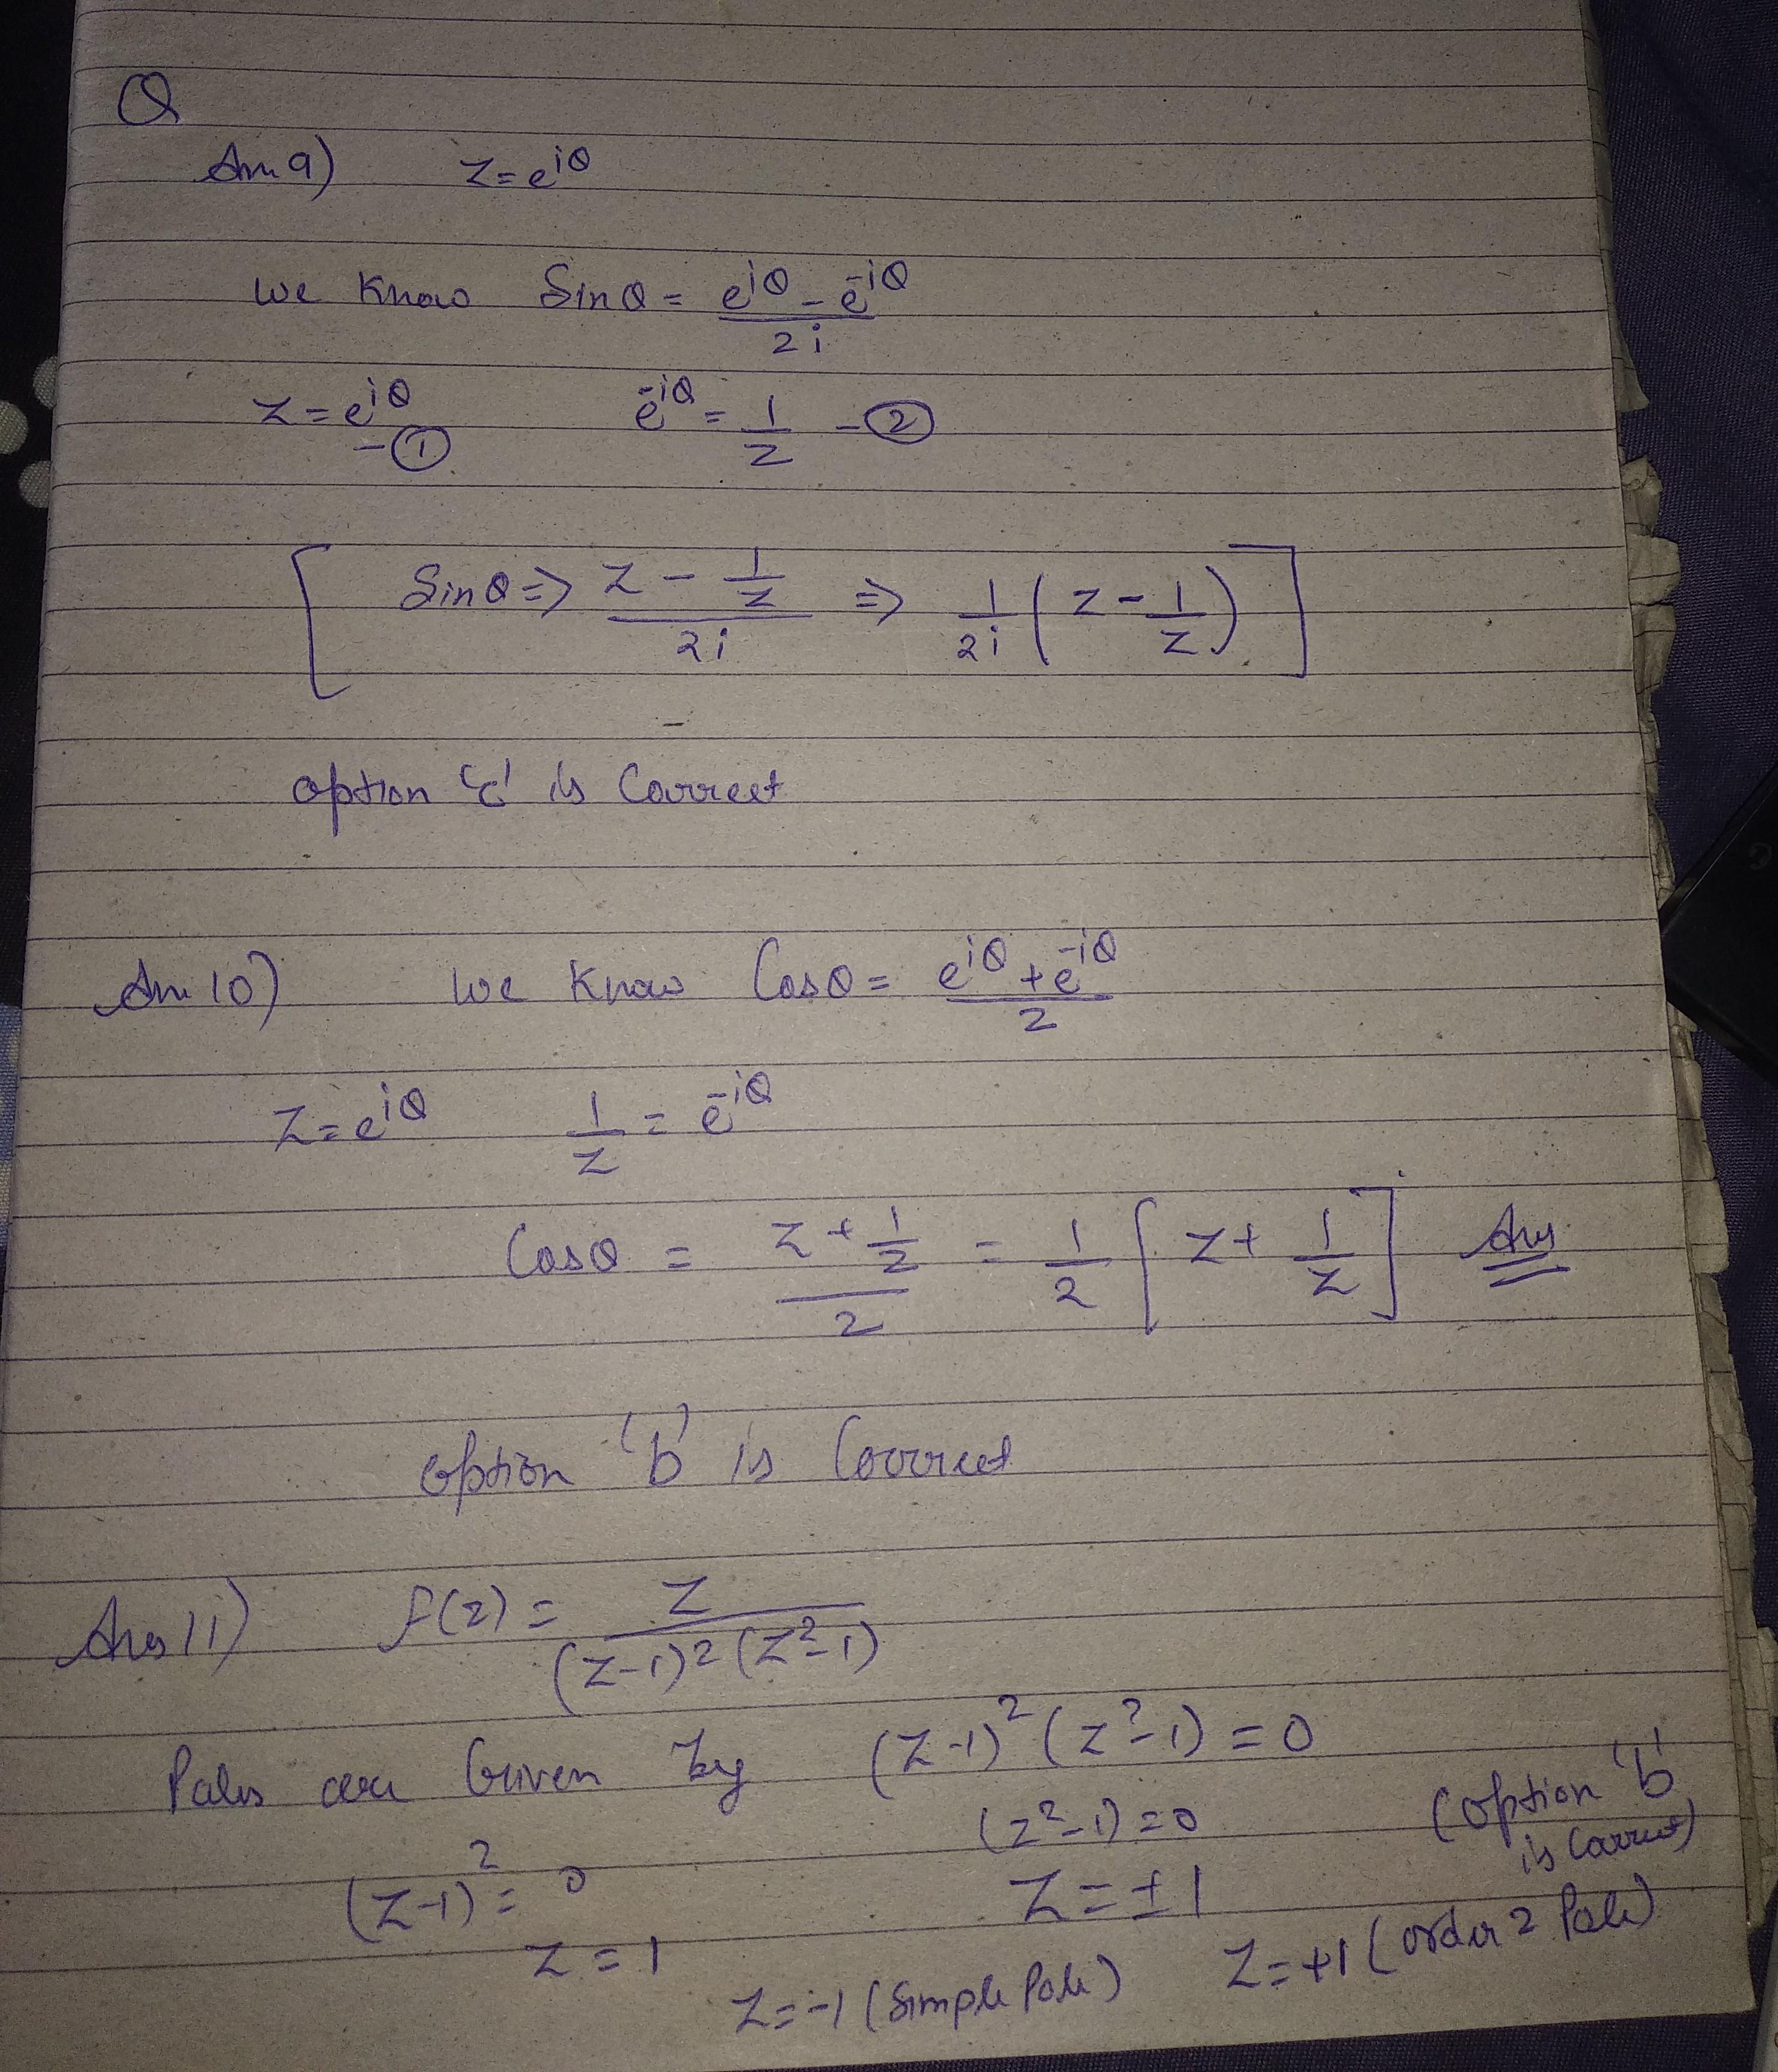 Q
Ans 9) z = e^{iθ}
We Know Sinθ = (e^{iθ} - e^{-iθ}) / 2i
z = e^{iθ} -① e^{-iθ} = 1/z -②
[ Sinθ => (z - 1/z) / 2i => 1/2i (z - 1/z) ]
option 'c' is Correct
Ans 10) We Know Cosθ = (e^{iθ} + e^{-iθ}) / 2
z = e^{iθ} 1/z = e^{-iθ}
Cosθ = (z + 1/z) / 2 = 1/2 [ z + 1/z ] Ans
option 'b' is Correct
Ans 11) f(z) = z / (z-1)² (z²-1)
Poles are Given by (z-1)² (z²-1) = 0
(z-1)² = 0 (z²-1) = 0 (option 'b' is Correct)
z = 1 z = ±1
z = -1 (Simple Pole) z = +1 (order 2 Pole)